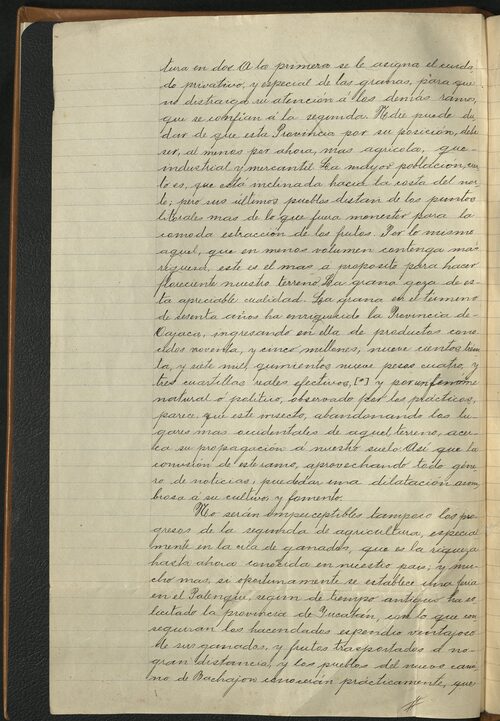 tura en dos. A la primera se le asigna el cuida
do privativo, y especial de las granas, para que
no distraiga su atención á los demás ramos,
que se confian á la segunda. Nadie puede du
dar de que esta Provincia por su posición, debe
ser, al menos por ahora, mas agrícola, que
industrial y mercantil. La mayor poblacion,
lo es, que está inclinada hacia la costa del nor
te; pero sus últimos pueblos distan de los puntos
literales mas de lo que fuera menester para la
comoda estraccion de los frutos. Por lo mismo
aquel, que en menos volumen contenga mas
riqueza, este es el mas a proposito para hacer
floreciente nuestro terreno. La grana goza de es-
ta apreciable cualidad. La grana en el término
de sesenta años ha enriquecido la Provincia de
Oajaca, ingresando en ella de productos cono
cidos noventa, y cinco millones, nueve cientos trein
ta, y siete mil, quinientos nueve pesos cuatro, y
tres cuartillas reales efectivos, [*] y por un fenóme
natural o politico, observado por los prácticos,
parece, que este insecto, abandonando los lu
gares mas occidentales de aquel terreno, acer
ca su propagación á nuestro suelo. Así que la
comisión de este ramo, aprovechando todo géne
ro de noticias, puede dar una dilatación asom
brosa á su cultivo, y fomento.
No serán imperceptibles tampoco los pro
gresos de la segunda de agricultura, especial
mente en la cría de ganados, que es la riqueza
hasta ahora conocida en nuestro pais; y mu
cho mas, si oportunamente se establece una feria
en el Palenque, segun de tiempo antiguo ha so
licitado la provincia de Yucatán, con lo que con
seguiran los hacendados espendio ventajoso
de sus ganados, y frutos trasportados á no
gran distancia, y los pueblos del nuevo cami
no de Bachajon conocerán prácticamente, que